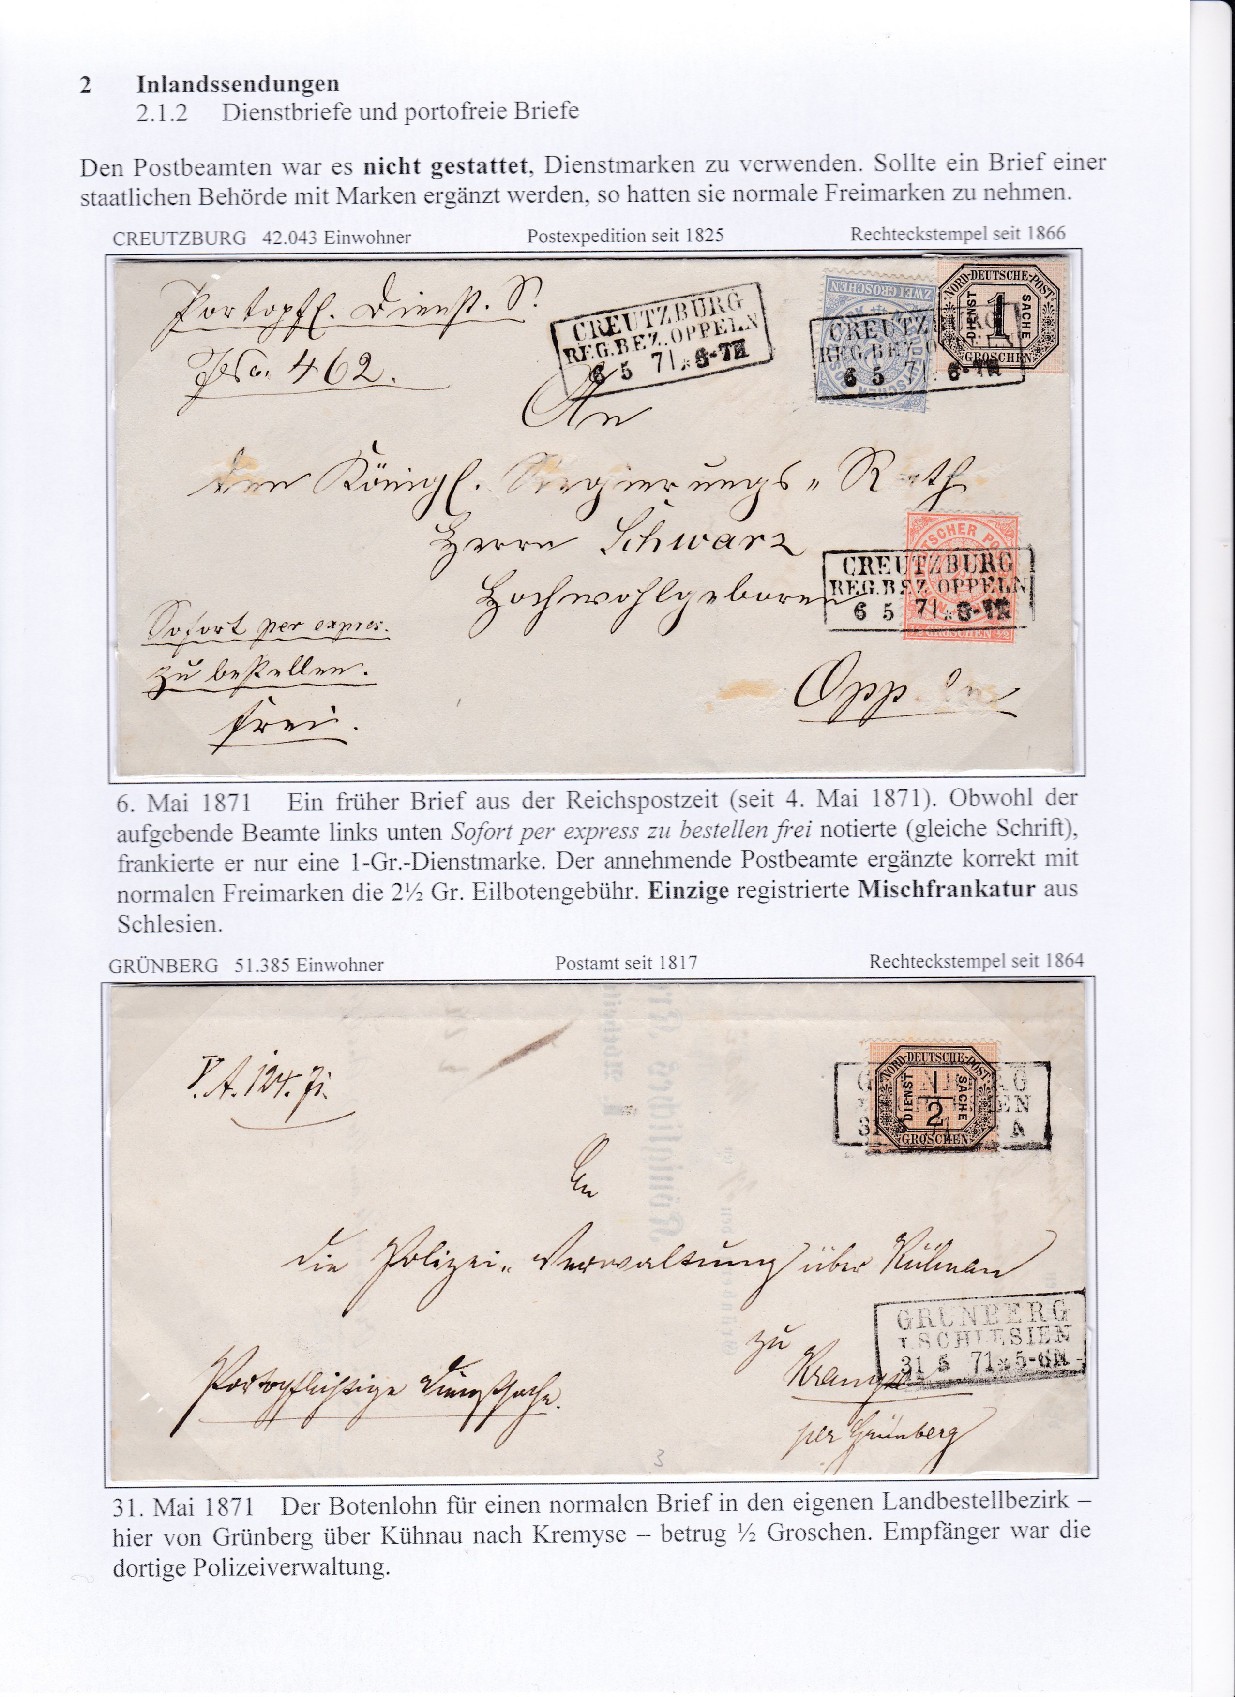 2 Inlandssendungen
2.1.2 Dienstbriefe und portofreie Briefe
Den Postbeamten war es nicht gestattet, Dienstmarken zu verwenden. Sollte ein Brief einer
staatlichen Behörde mit Marken ergänzt werden, so hatten sie normale Freimarken zu nehmen.
CREUTZBURG 42.043 Einwohner Postexpedition seit 1825 Rechteckstempel seit 1866
Portopfl. Dienst. S.
No. 462.
CREUTZBURG
REG.BEZ.OPPELN
6 5 71 * 6-7N
ZWEI GROSCHEN
CREUTZ
REG.BEZ.O
6 5 7 6-7N
NORD-DEUTSCHE-POST
DIENST 1 SACHE
GROSCHEN
An
den Königl. Regierungs- Rath
Herrn Schwarz
Hochwohlgeboren
CREUTZBURG
REG.BEZ.OPPELN
6 5 71 * 6-7N
GROSCHEN 1/2
Sofort per express.
zu bestellen.
frei.
Oppeln
6. Mai 1871 Ein früher Brief aus der Reichspostzeit (seit 4. Mai 1871). Obwohl der
aufgebende Beamte links unten Sofort per express zu bestellen frei notierte (gleiche Schrift),
frankierte er nur eine 1-Gr.-Dienstmarke. Der annehmende Postbeamte ergänzte korrekt mit
normalen Freimarken die 2½ Gr. Eilbotengebühr. Einzige registrierte Mischfrankatur aus
Schlesien.
GRÜNBERG 51.385 Einwohner Postamt seit 1817 Rechteckstempel seit 1864
V. A. 124. 71.
NORD-DEUTSCHE-POST
DIENST 1/2 SACHE
GROSCHEN
An
die Polizei- Verwaltung über Kühnau
zu
per Grünberg
Portopflichtige Dienstsache.
GRÜNBERG
I. SCHLESIEN
31 5 71 * 5-6N
3
31. Mai 1871 Der Botenlohn für einen normalen Brief in den eigenen Landbestellbezirk –
hier von Grünberg über Kühnau nach Kremyse – betrug ½ Groschen. Empfänger war die
dortige Polizeiverwaltung.